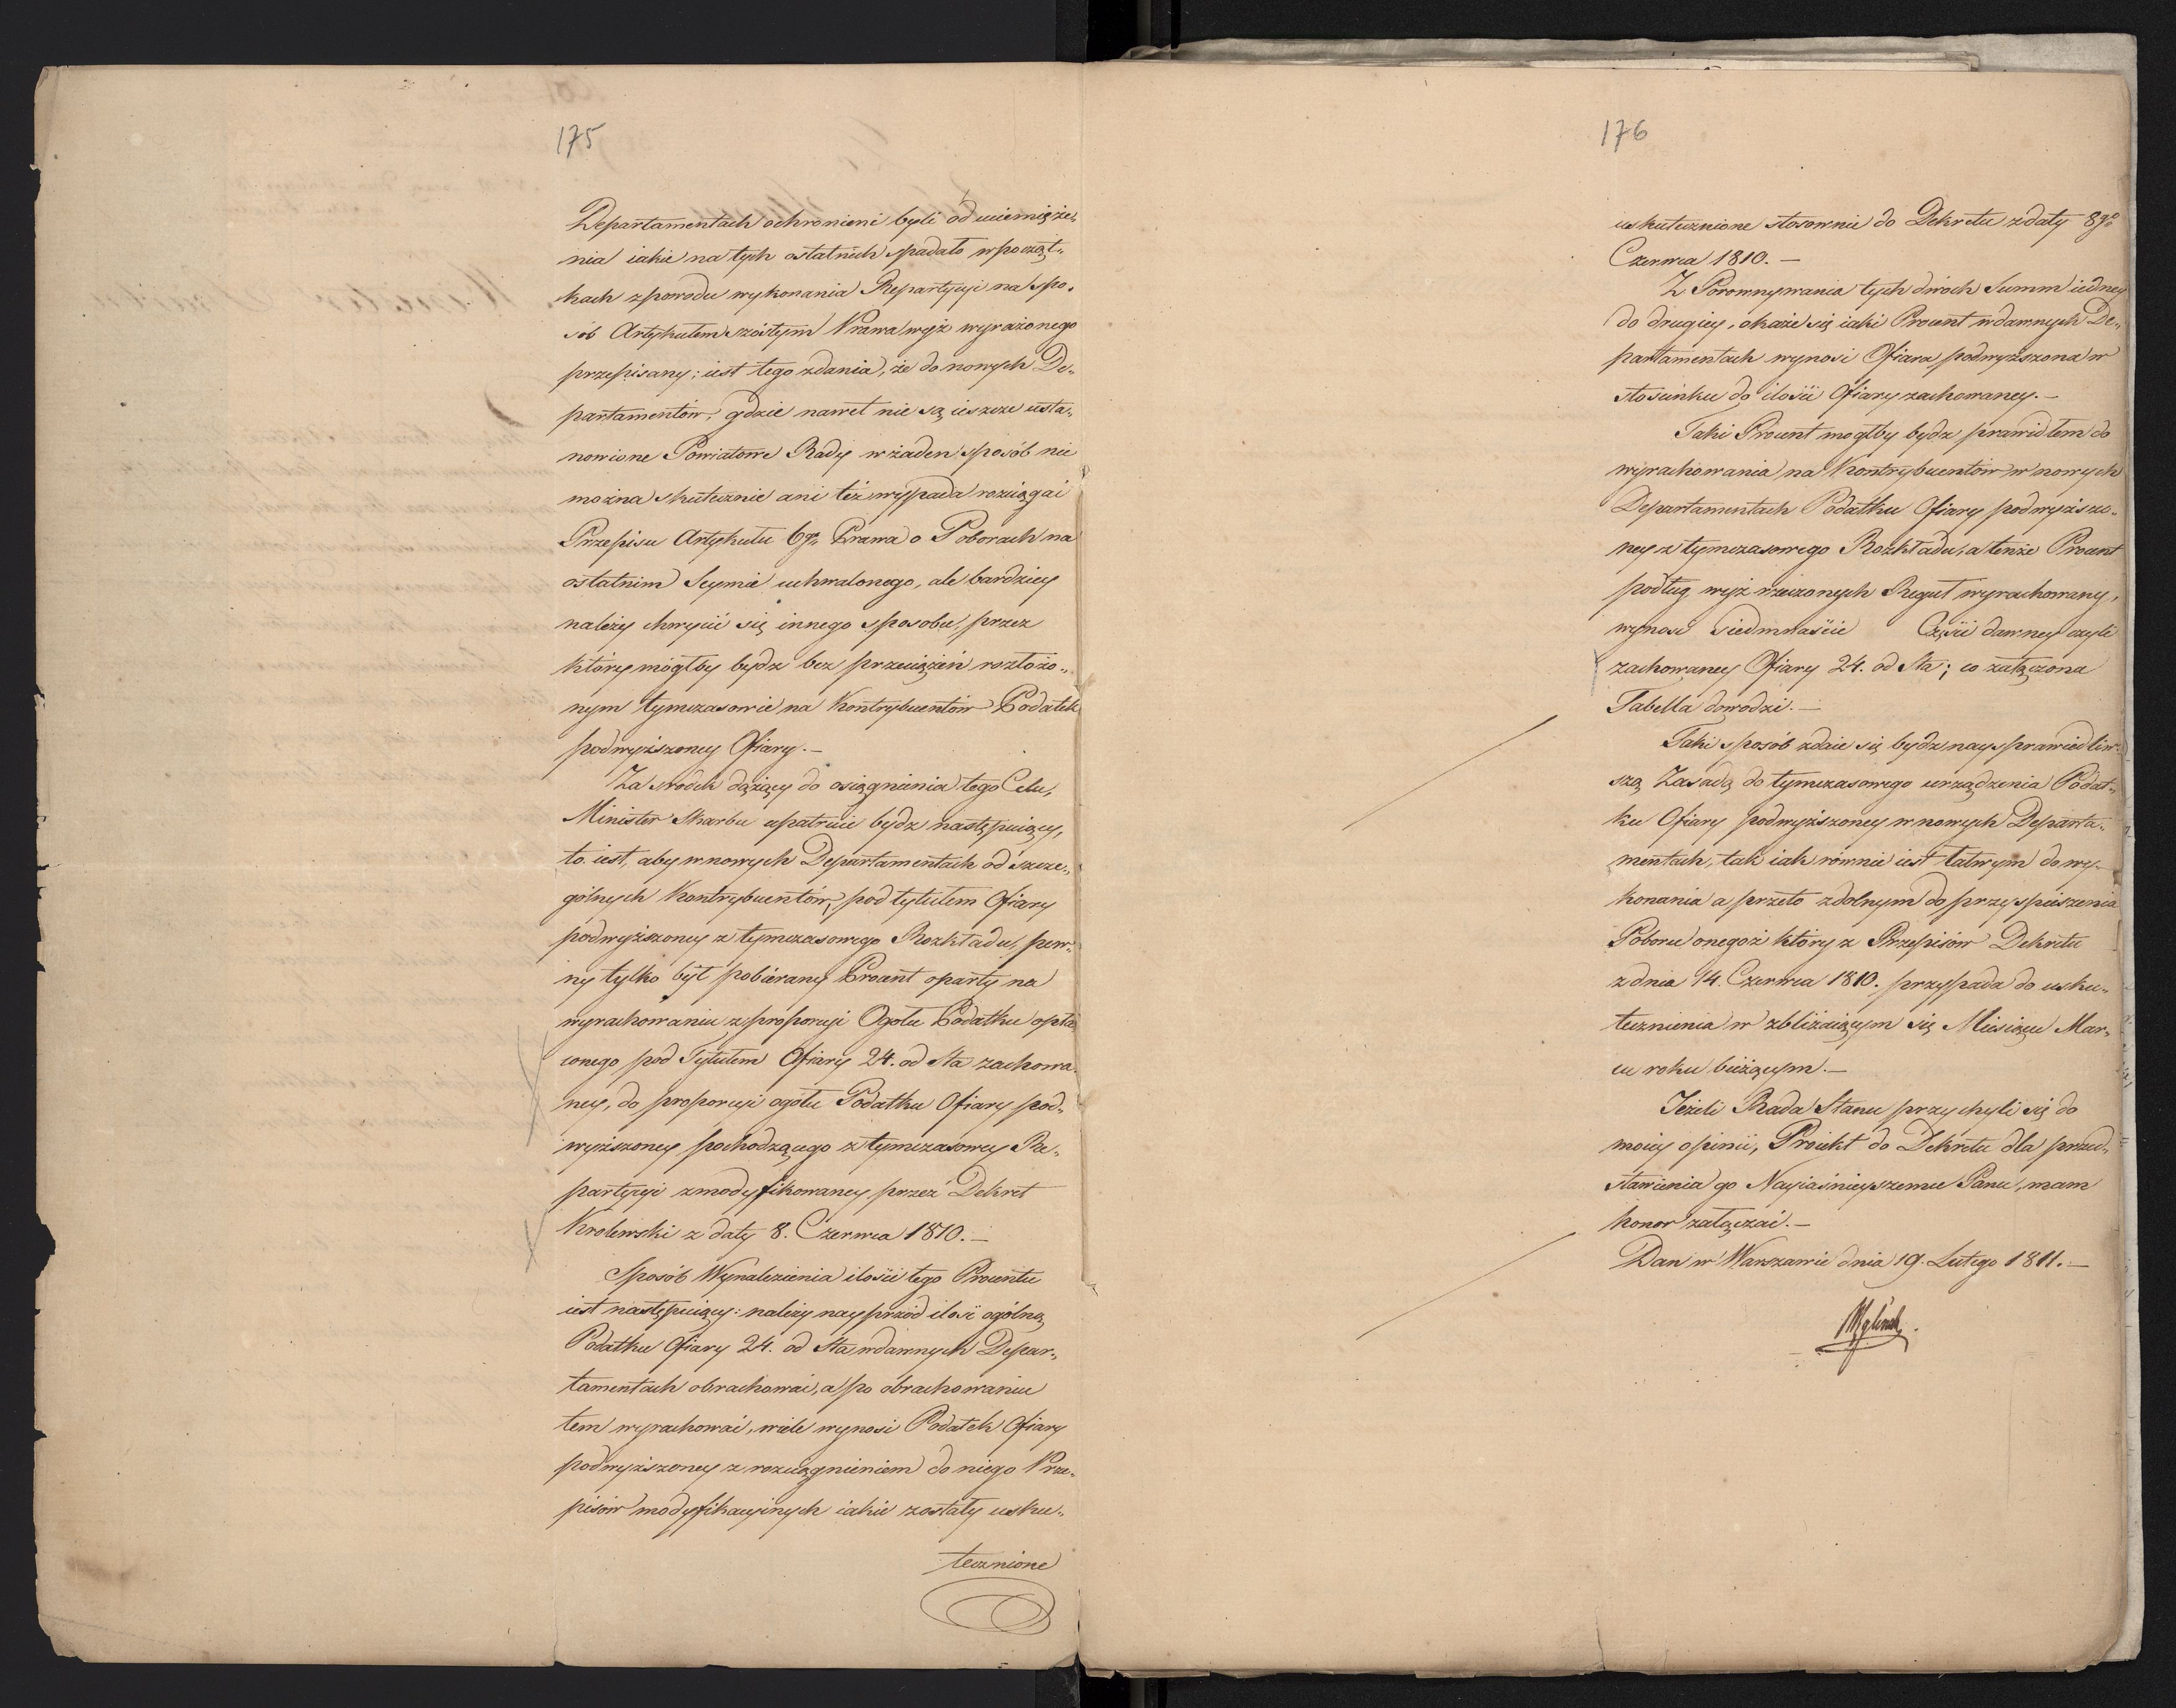 175
Departamentach ochronieni byli od uciemięże„
nia iakie na tych ostatnich spadało w począt„
kach z powodu wykonania Repartycyi na spo„
sób Artykułem szóstym Prawa wyż wyrażonego
przepisany; iest tego zdania, że do nowych De„
partamentów, gdzie nawet nie są ieszcze usta„
nowione Powiatowe Rady w żaden sposób nie
można skutecznie ani też wypada rozciągać
Przepisu Artykułu 6go Prawa o Poborach na
ostatnim Seymie uchwalonego, ale bardziey
należy chwycić się innego sposobu, przez
który mógłby bydz bez przeciążeń rozłożo„
nym tymczasowie na Kontrybuentów Podatek
podwyższoney Ofiary.—
Za srodek dążący do osiągnienia tego Celu,
Minister Skarbu upatruie bydz następuiący,
to iest, aby w nowych Departamentach od szcze„
gólnych Kontrybuentów, pod tytułem Ofiary
podwyższoney z tymczasowego Rozkładu, pew„
ny tylko był pobierany Procent oparty na
wyrachowaniu z proporcyi Ogołu Podatku opła„
conego pod Tytułem Ofiary 24. od Sta zachowa„
ney, do proporcyi ogółu Podatku Ofiary pod„
wyższoney pochodzącego z tymczasowey Re„
partycyi zmodyfikowaney przez Dekret
Krolewski z daty 8. Czerwca 1810.—
Sposób Wynalezienia ilości tego Procentu
iest następuiący: należy nayprzód ilość ogólną
Podatku Ofiary 24. od Sta w dawnych Depar„
tamentach obrachować, a po obrachowaniu
tem wyrachować, wiele wynosi Podatek Ofiary
podwyższoney z rozciągnieniem do niego Prze„
pisów modyfikacyinych iakie zostały usku„
tecznione
176
uskutecznione stosownie do Dekretu z daty 8go
Czerwca 1810.—
Z Porownywania tych dwóch Summ iedney
do drugiey, okaże się iaki Procent w dawnych De„
partamentach wynosi Ofiara podwyższona w
stosunku do ilości Ofiary zachowaney.—
Taki Procent mogłby bydz prawidłem do
wyrachowania na Kontrybuentów w nowych
Departamentach Podatku Ofiary podwyższo„
ney z tymczasowego Rozkładu, a tenże Procent
podług wyż rzeczonych Reguł wyrachowany,
wynosi siedmnaście Części dawney czyli
zachowaney Ofiary 24. od Sta; co załączona
Tabella dowodzi.—
Taki sposób zdaie się bydz naysprawiedliw„
szą Zasadą do tymczasowego urządzenia Podat„
ku Ofiary podwyższoney w nowych Departa„
mentach, tak iak równie iest łatwym do wy„
konania a przeto zdolnym do przyspieszenia
Poboru onegoż który z Przepisów Dekretu
z dnia 14. Czerwca 1810. przypada do usku„
tecznienia w zbliżaiącym się Miesiącu Mar„
cu roku bieżącym.—
Ieżeli Rada Stanu przychyli się do
moiey opinii, Proiekt do Dekretu dla przed„
stawienia go Nayiaśnieyszemu Panu, mam
honor załączać.—
Dan w Warszawie dnia 19. Lutego 1811.—